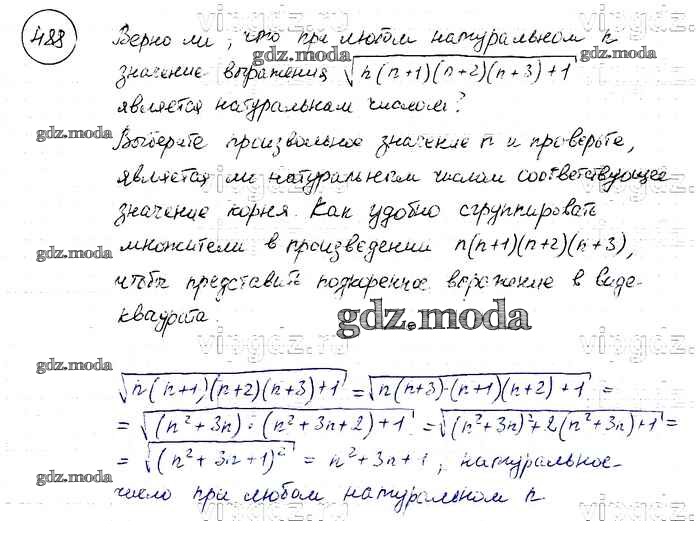 488
Верно ли, что при любом натуральном n
значение выражения √n(n+1)(n+2)(n+3)+1
является натуральным числом?
Выберете произвольное значение n и проверьте,
является ли натуральным числом соответствующее
значение корня. Как удобно сгруппировать
множители в произведении n(n+1)(n+2)(n+3),
чтобы представить подкоренное выражение в виде
квадрата.
gdz.moda
√n(n+1)(n+2)(n+3)+1 = √n(n+3)·(n+1)(n+2)+1 =
= √(n²+3n)·(n²+3n+2)+1 = √(n²+3n)²+2(n²+3n)+1 =
= √(n²+3n+1)² = n²+3n+1, натуральное
число при любом натуральном n.